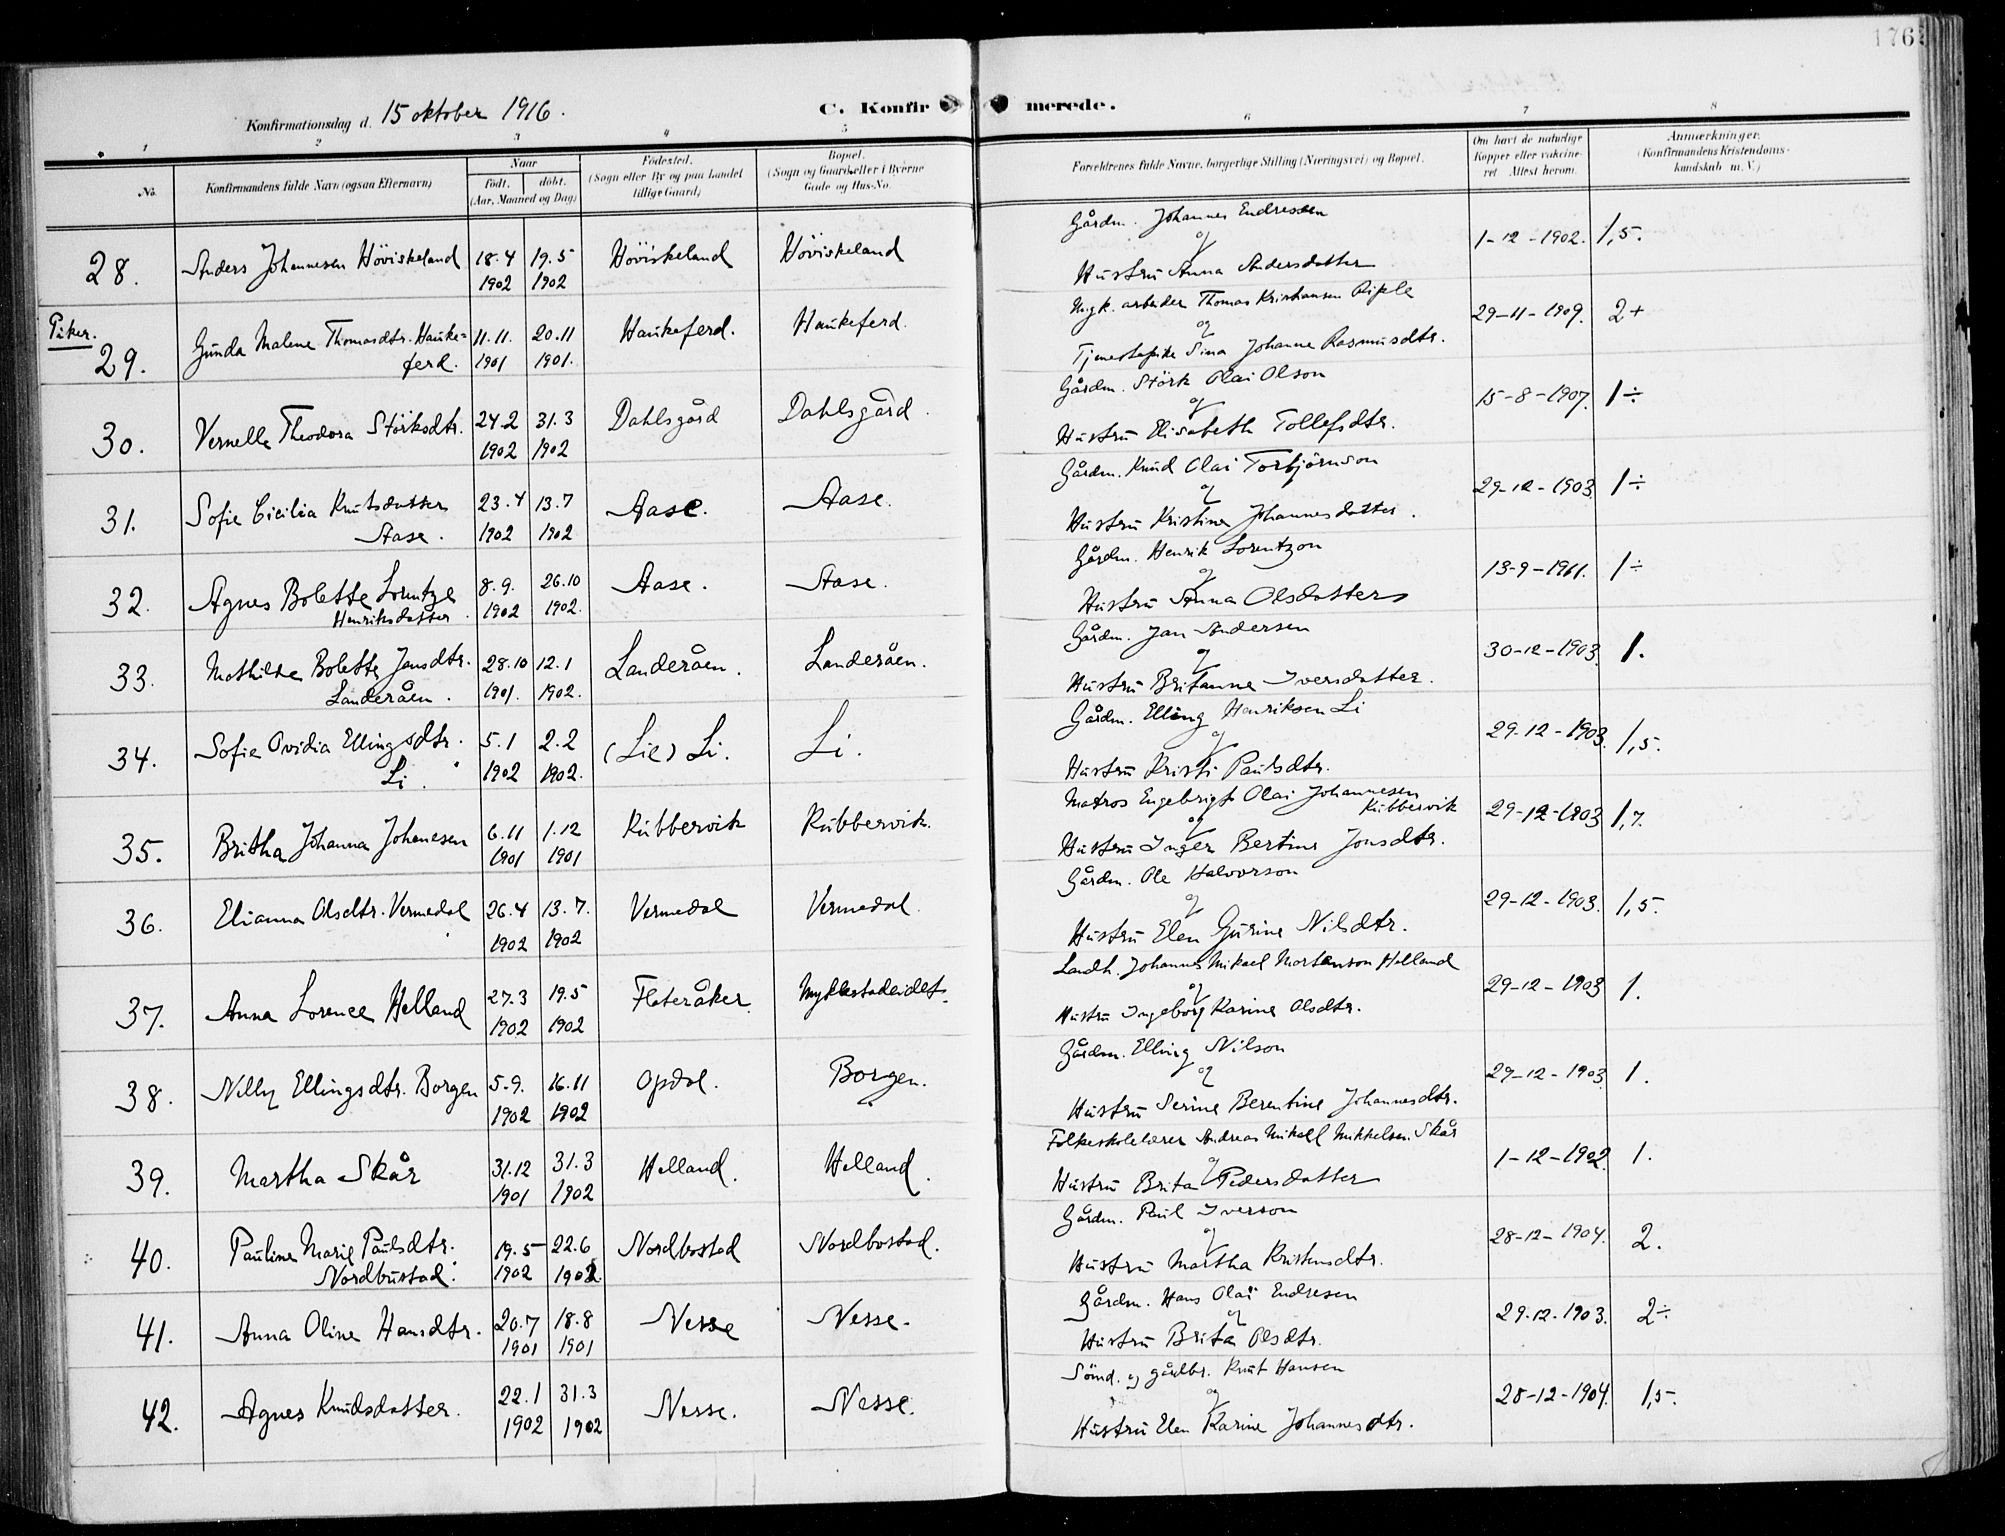 176
Konfirmationsdag d. 15 oktober 1916.
C. Konfirmerede.
1 2 3 4 5 6 7 8
No. Konfirmandens fulde Navn (ogsaa Efternavn)
Naar
født. døbt.
(Aar, Maaned og Dag)
Fødested.
(Sogn eller By og paa Landet
tillige Gaard)
Bopæl.
(Sogn og Gaard, eller i Byerne
Gade og Hus-No.
Forældrenes fulde Navne, borgerlige Stilling (Næringsvei) og Bopæl.
Om havt de naturlige
Kopper eller vakcine-
ret. Attest herom.
Anmærkninger.
(Konfirmandens Kristendoms-
kundskab m. V.)
28. Anders Johannesen Höviskeland 18.4 1902 19.5 1902 Höviskeland Höviskeland
Gårdm. Johannes Endressen
og
Hustru Anna Andersdatter
1-12-1902. 1,5.
Piker.
29. Gunda Malene Thomasdtr. Hauke=
ferd. 11.11. 1901 20.11 1901. Haukeferd. Haukeferd.
Ugk. arbeider Thomas Kristiansen Riple
og
Tjenestepike Sina Johanne Rasmusdtr.
29-11-1909. 2+
30. Vernelle Theodora Störksdtr. 24.2 1902 31.3 1902 Dahlsgård Dahlsgård.
Gårdm. Störk Olai Olson
og
Hustru Elisabeth Tollefsdtr.
15-8-1907. 1÷
31. Sofie Cicilia Knutsdatter
Aase. 23.4 1902 13.7 1902 Aase. Aase.
Gårdm. Knud Olai Torbjörnson
og
Hustru Kristine Johannesdatter.
29-12-1903. 1÷
32. Agnes Bolette Lorntze
Henriksdatter. 8.9. 1902 26.10 1902. Aase. Aase.
Gårdm. Henrik Lorentzon
og
Hustru Anna Olsdatter
13-9-1911. 1÷
33. Mathilde Bolette Jansdtr.
Landeråen. 28.10 1901. 12.1 1902. Landeråen. Landeråen.
Gårdm. Jan Andersen
og
Hustru Britanne Iversdatter.
30-12-1903. 1.
34. Sofie Ovidia Ellingsdtr.
Li. 5.1 1902 2.2 1902. (Lie) Li. Li.
Gårdm. Elling Henriksen Li
og
Hustru Kristi Paulsdtr.
29.12-1903. 1,5.
35. Britha Johanna Johanesen 6.11 1901 1.12 1901 Rubbervik Rubbervik.
Matros Engebrigt Olai Johannesen
Rubbervik
og
Hustru Inger Bertine Jonsdtr.
29-12-1903 1,7.
36. Elianna Olsdtr. Vermedal 26.4 1902 13.7. 1902 Vermedal Vermedal.
Gårdm. Ole Halvorson
og
Hustru Elen Gurine Nilsdtr.
29-12-1903. 1,5.
37. Anna Lorence Helland 27.3 1902 19.5 1902 Flateråker. Myklestadeidet.
Landh. Johannes Mikael Martenson Helland
og
Hustru Ingeborg Karine Olsdtr.
29-12-1903 1.
38. Nilly Ellingsdtr. Borgen 5.9. 1902 16.11 1902 Opdal. Borgen.
Gårdm. Elling Nilson
og
Hustru Serine Berentine Johannesdtr.
29-12-1903. 1.
39. Martha Skår 31.12 1901 31.3 1902 Helland. Helland.
Folkeskolelærer Andreas Mikael Mikkelsen Skår
og
Hustru Brita Pedersdatter
1-12-1902. 1.
40. Pauline Marie Paulsdtr.
Nordbustad. 19.5 1902 22.6 1902 Nordbostad Nordbostad.
Gårdm. Paul Iverson
og
Hustru Martha Kristensdtr.
28-12-1904. 2.
41. Anna Oline Hansdtr. 20.7 1901 18.8 1901 Nesse Nesse.
Gårdm. Hans Olai Endresen
og
Hustru Brita Olsdtr.
29.12.1903. 2÷
42. Agnes Knudsdatter. 22.1 1902 31.3 1902 Nesse. Nesse.
Sömd. og gårdbr. Knut Hansen
og
Hustru Elen Karine Johannesdtr.
28-12-1904. 1,5.